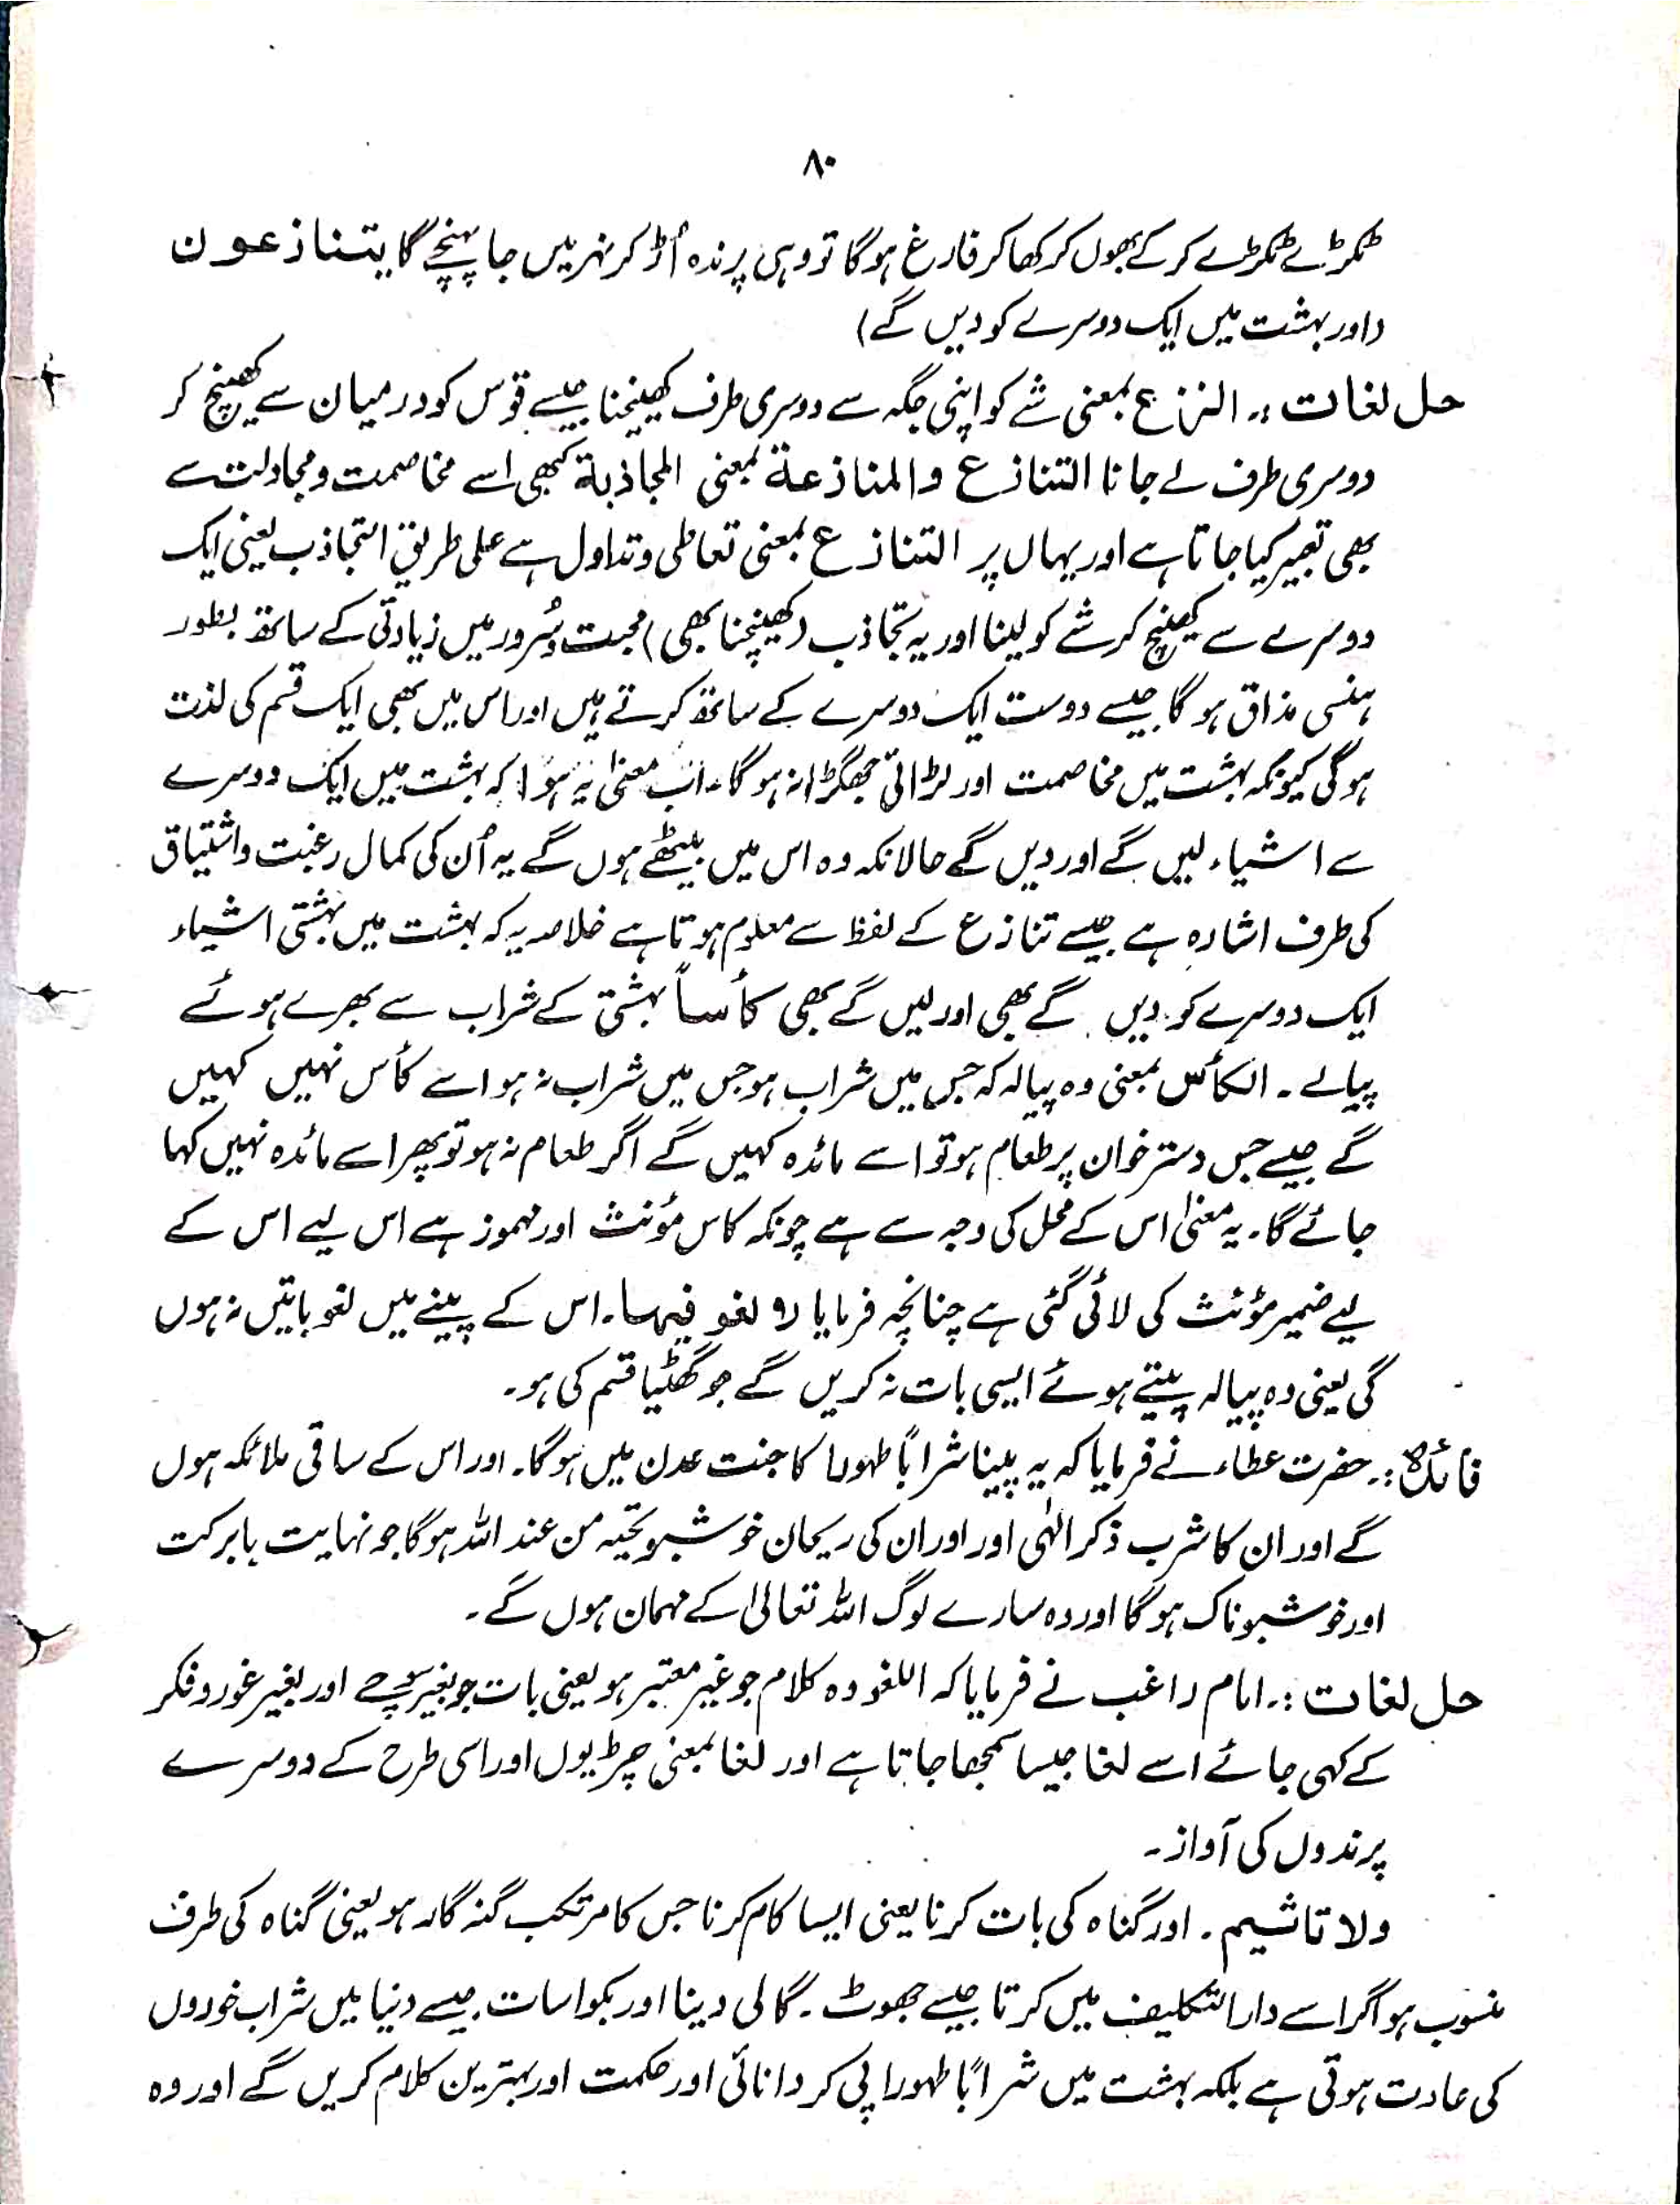 ۸۰
ٹکڑے ٹکڑے کر کے بھوں کر کھا کر فارغ ہوگا تو وہی پرندہ اُڑ کر نہر میں جا پہنچے گا یتنازعون
(اور بہشت میں ایک دوسرے کو دیں گے)
حل لغات :۔ النزع بمعنی شے کو اپنی جگہ سے دوسری طرف کھینچنا جیسے قوس کو درمیان سے کھینچ کر
دوسری طرف لے جانا التنازع والمنازعة بمعنی المجاذبة کبھی اسے مخاصمت و مجادلت سے
بھی تعبیر کیا جاتا ہے اور یہاں پر التنازع بمعنی تعاطی و تداول ہے علی طریق التجاذب یعنی ایک
دوسرے سے کھینچ کر شے کو لینا اور یہ تجاذب (کھینچنا بھی) محبت و سُرور میں زیادتی کے ساتھ بطور
ہنسی مذاق ہو گا جیسے دوست ایک دوسرے کے ساتھ کرتے ہیں اور اس میں بھی ایک قسم کی لذت
ہوگی کیونکہ بہشت میں مخاصمت اور لڑائی جھگڑا نہ ہو گا۔ اب معنیٰ یہ ہوا کہ بہشت میں ایک دوسرے
سے اشیاء لیں گے اور دیں گے حالانکہ وہ اس میں بیٹھے ہوں گے یہ اُن کی کمال رغبت و اشتیاق
کی طرف اشارہ ہے جیسے تنازع کے لفظ سے معلوم ہوتا ہے خلاصہ یہ کہ بہشت میں بہشتی اشیاء
ایک دوسرے کو دیں گے بھی اور لیں گے بھی کأساً بہشتی کے شراب سے بھرے ہوئے
پیالے ۔ الکأس بمعنی وہ پیالہ کہ جس میں شراب ہو جس میں شراب نہ ہو اسے کأس نہیں کہیں
گے جیسے جس دسترخوان پر طعام ہو تو اسے مائدہ کہیں گے اگر طعام نہ ہو تو پھر اسے مائدہ نہیں کہا
جائے گا۔ یہ معنیٰ اس کے محل کی وجہ سے ہے چونکہ کاس مؤنث اور مہموز ہے اس لیے اس کے
لیے ضمیر مؤنث کی لائی گئی ہے چنانچہ فرمایا لا لغو فیہا۔ اس کے پینے میں لغو باتیں نہ ہوں
گی یعنی وہ پیالہ پیتے ہوئے ایسی بات نہ کریں گے جو گھٹیا قسم کی ہو۔
فائدہ :۔ حضرت عطاء نے فرمایا کہ یہ پینا شراباً طہورا کا جنت عدن میں ہوگا۔ اور اس کے ساقی ملائکہ ہوں
گے اور ان کا شرب ذکر الٰہی اور اور ان کی ریحان خوشبو تحیّہ من عند اللہ ہوگا جو نہایت بابرکت
اور خوشبوناک ہوگا اور وہ سارے لوگ اللہ تعالیٰ کے مہمان ہوں گے۔
حل لغات :۔ امام راغب نے فرمایا کہ اللغو وہ کلام جو غیر معتبر ہو یعنی بات جو بغیر سوچے اور بغیر غور و فکر
کے کہی جائے اسے لغا جیسا سمجھا جاتا ہے اور لغا بمعنی چڑیوں اور اسی طرح کے دوسرے
پرندوں کی آواز۔
ولا تاثیم ۔ اور گناہ کی بات کرنا یعنی ایسا کام کرنا جس کا مرتکب گنہگار ہو یعنی گناہ کی طرف
منسوب ہو اگر اسے دارالتکلیف میں کرتا جیسے جھوٹ ۔ گالی دینا اور بکواسات جیسے دنیا میں شراب خوروں
کی عادت ہوتی ہے بلکہ بہشت میں شراباً طہورا پی کر دانائی اور حکمت اور بہترین کلام کریں گے اور وہ